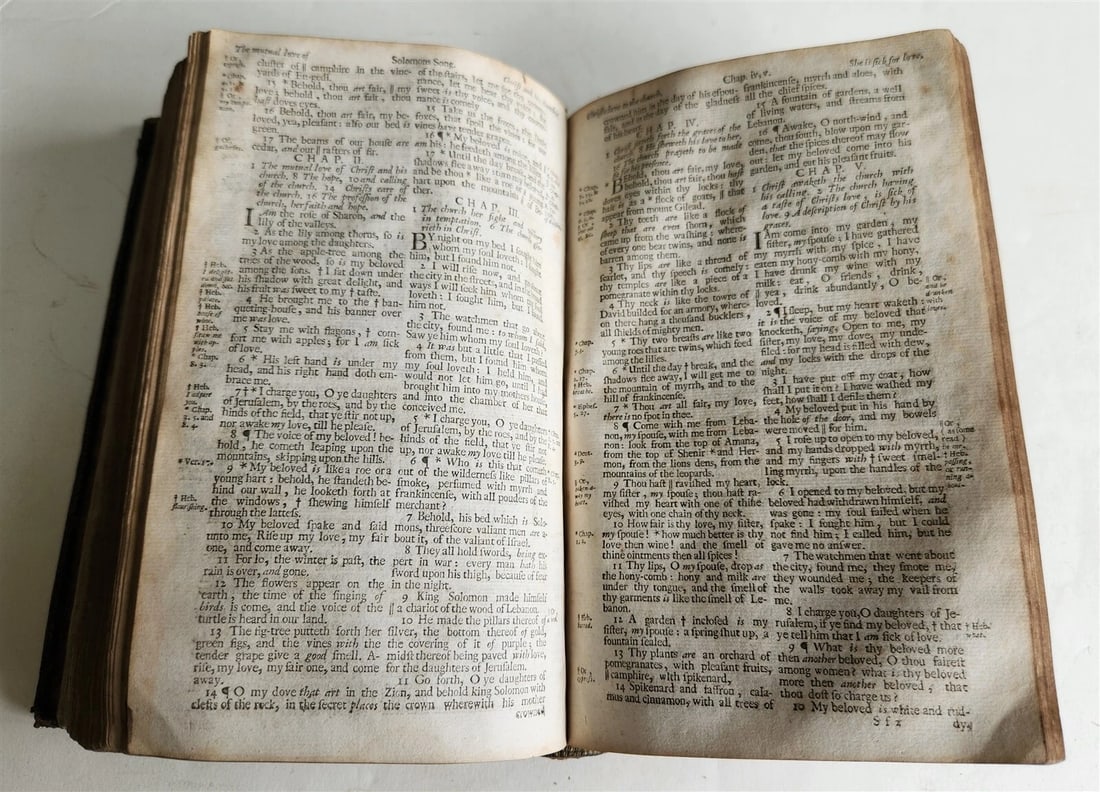 The mutual love of
Solomons Song.
cluster of || camphire in the vine-
yards of En-gedi.
15 * Behold, thou art fair, || my
love; behold, thou art fair, thou
hast doves eyes.
16 Behold, thou art fair, my be-
loved, yea, pleasant: also our bed is
green.
17 The beams of our house are
cedar, and our || rafters of fir.
CHAP. II.
1 The mutual love of Christ and his
church. 8 The hope, 10 and calling
of the church. 14 Christs care of
the church. 16 The profession of the
church, her faith and hope.
I Am the rose of Sharon, and the
lily of the valleys.
2 As the lily among thorns, so is
my love among the daughters.
3 As the apple-tree among the
trees of the wood, so is my beloved
among the sons. † I sat down under
his shadow with great delight, and
his fruit was sweet to my † taste.
4 He brought me to the † ban-
queting-house, and his banner over
me was love.
5 Stay me with flagons, † com-
fort me with apples; for I am sick
of love.
6 * His left hand is under my
head, and his right hand doth em-
brace me.
7 † * I charge you, O ye daughters
of Jerusalem, by the roes, and by the
hinds of the field, that ye stir not up,
nor awake my love, till he please.
8 ¶ The voice of my beloved! be-
hold, he cometh leaping upon the
mountains, skipping upon the hills.
9 * My beloved is like a roe or a
young hart: behold, he standeth be-
hind our wall, he looketh forth at
the windows, † shewing himself
through the lattess.
10 My beloved spake and said
unto me, Rise up my love, my fair
one, and come away.
11 For lo, the winter is past, the
rain is over, and gone.
12 The flowers appear on the
earth, the time of the singing of
birds is come, and the voice of the
turtle is heard in our land.
13 The fig-tree putteth forth her
green figs, and the vines with the
tender grape give a good smell. A-
rise, my love, my fair one, and come
away.
14 ¶ O my dove that art in the
clefts of the rock, in the secret places
of the stairs, let me
sweet is thy voice, and thy
nance is comely.
15 Take us the foxes, the
foxes, that spoil the vines: for
vines have tender grapes.
16 ¶ * My beloved
am his: he feedeth among
17 * Until the day
shadows flee away: turn
and be thou * like a roe or
hart upon the mountains
CHAP. III.
1 The church her fight and
in temptation. 6 The church
rieth in Christ.
BY night on my bed I sought
whom my soul loveth: I
him, but I found him not.
2 I will rise now, and
the city in the streets, and in
ways I will seek him whom
loveth: I sought him, but
him not.
3 The watchmen that go about
the city, found me: to whom I said,
Saw ye him whom my soul loveth?
4 It was but a little that I passed
from them, but I found him whom
my soul loveth: I held him, and
would not let him go, until I had
brought him into my mothers house,
and into the chamber of her that
conceived me.
5 * I charge you, O ye daughters
of Jerusalem, by the roes, and by the
hinds of the field, that ye stir not
up, nor awake my love till he please.
6 ¶ * Who is this that cometh
out of the wilderness like pillars of
smoke, perfumed with myrrh and
frankincense, with all pouders of the
merchant?
7 Behold, his bed which is Solo-
mons, threescore valiant men are a-
bout it, of the valiant of Israel.
8 They all hold swords, being ex-
pert in war: every man hath his
sword upon his thigh, because of fear
in the night.
9 King Solomon made himself
|| a chariot of the wood of Lebanon.
10 He made the pillars thereof of
silver, the bottom thereof of gold,
the covering of it of purple; the
midst thereof being paved with love,
for the daughters of Jerusalem.
11 Go forth, O ye daughters of
Zion, and behold king Solomon with
the crown wherewith his mother
crowned
Chap. iv, v.
She is sick for love.
crowned him in the day of his espou-
and in the day of the gladness
of his heart.
CHAP. IV.
1 Christ setteth forth the graces of the
church. 8 He sheweth his love to her.
16 The church prayeth to be made
Behold, thou art fair, my love,
behold, thou art fair, thou hast
doves eyes within thy locks: thy
hair is as a * flock of goats, || that
appear from mount Gilead.
2 Thy teeth are like a flock of
sheep that are even shorn, which
came up from the washing: where-
of every one bear twins, and none is
barren among them.
3 Thy lips are like a thread of
scarlet, and thy speech is comely:
thy temples are like a piece of a
pomegranate within thy locks.
4 Thy neck is like the tower of
David builded for an armory, where-
on there hang a thousand bucklers,
all shields of mighty men.
5 * Thy two breasts are like two
young roes that are twins, which feed
among the lilies.
6 * Until the day † break, and the
shadows flee away, I will get me to
the mountain of myrrh, and to the
hill of frankincense.
7 * Thou art all fair, my love,
there is no spot in thee.
8 ¶ Come with me from Leba-
non, my spouse, with me from Leba-
non: look from the top of Amana,
from the top of Shenir * and Her-
mon, from the lions dens, from the
mountains of the leopards.
9 Thou hast || ravished my heart,
my sister, my spouse; thou hast ra-
vished my heart with one of thine
eyes, with one chain of thy neck.
10 How fair is thy love, my sister,
my spouse! * how much better is thy
love then wine! and the smell of
thine ointments then all spices!
11 Thy lips, O my spouse, drop as
the hony-comb: hony and milk are
under thy tongue, and the smell of
thy garments is like the smell of Le-
banon.
12 A garden † inclosed is my
sister, my spouse: a spring shut up, a
fountain sealed.
13 Thy plants are an orchard of
pomegranates, with pleasant fruits,
|| camphire, with spikenard,
14 Spikenard and saffron, cala-
mus and cinnamon, with all trees of
frankincense, myrrh and aloes, with
all the chief spices.
15 A fountain of gardens, a well
of living waters, and streams from
Lebanon.
16 ¶ Awake, O north-wind, and
come, thou south, blow upon my gar-
den, that the spices thereof may flow
out: let my beloved come into his
garden, and eat his pleasant fruits.
CHAP. V.
1 Christ awaketh the church with
his calling. 2 The church having
a taste of Christs love, is sick of
love. 9 A description of Christ by his
graces.
I Am come into my garden, my
sister, my spouse; I have gathered
my myrrh with my spice, I have
eaten my hony-comb with my hony,
I have drunk my wine with my
milk: eat, O friends, drink,
|| yea, drink abundantly, O be-
loved.
2 ¶ I sleep, but my heart waketh:
it is the voice of my beloved that
knocketh, saying, Open to me, my
sister, my love, my dove, my unde-
filed: for my head is filled with dew,
and my locks with the drops of the
night.
3 I have put off my coat, how
shall I put it on? I have washed my
feet, how shall I defile them?
4 My beloved put in his hand by
the hole of the door, and my bowels
were moved || for him.
5 I rose up to open to my beloved,
and my hands dropped with myrrh,
and my fingers with † sweet smel-
ling myrrh, upon the handles of the
lock.
6 I opened to my beloved, but my
beloved had withdrawn himself, and
was gone: my soul failed when he
spake: I sought him, but I could
not find him; I called him, but he
gave me no answer.
7 The watchmen that went about
the city, found me, they smote me,
they wounded me; the keepers of
the walls took away my vail from
me.
8 I charge you, O daughters of Je-
rusalem, if ye find my beloved, † that
ye tell him that I am sick of love.
9 ¶ What is thy beloved more
then another beloved, O thou fairest
among women? what is thy beloved
more then another beloved, that
thou dost so charge us?
10 My beloved is white and rud-
Sf 2
dy,